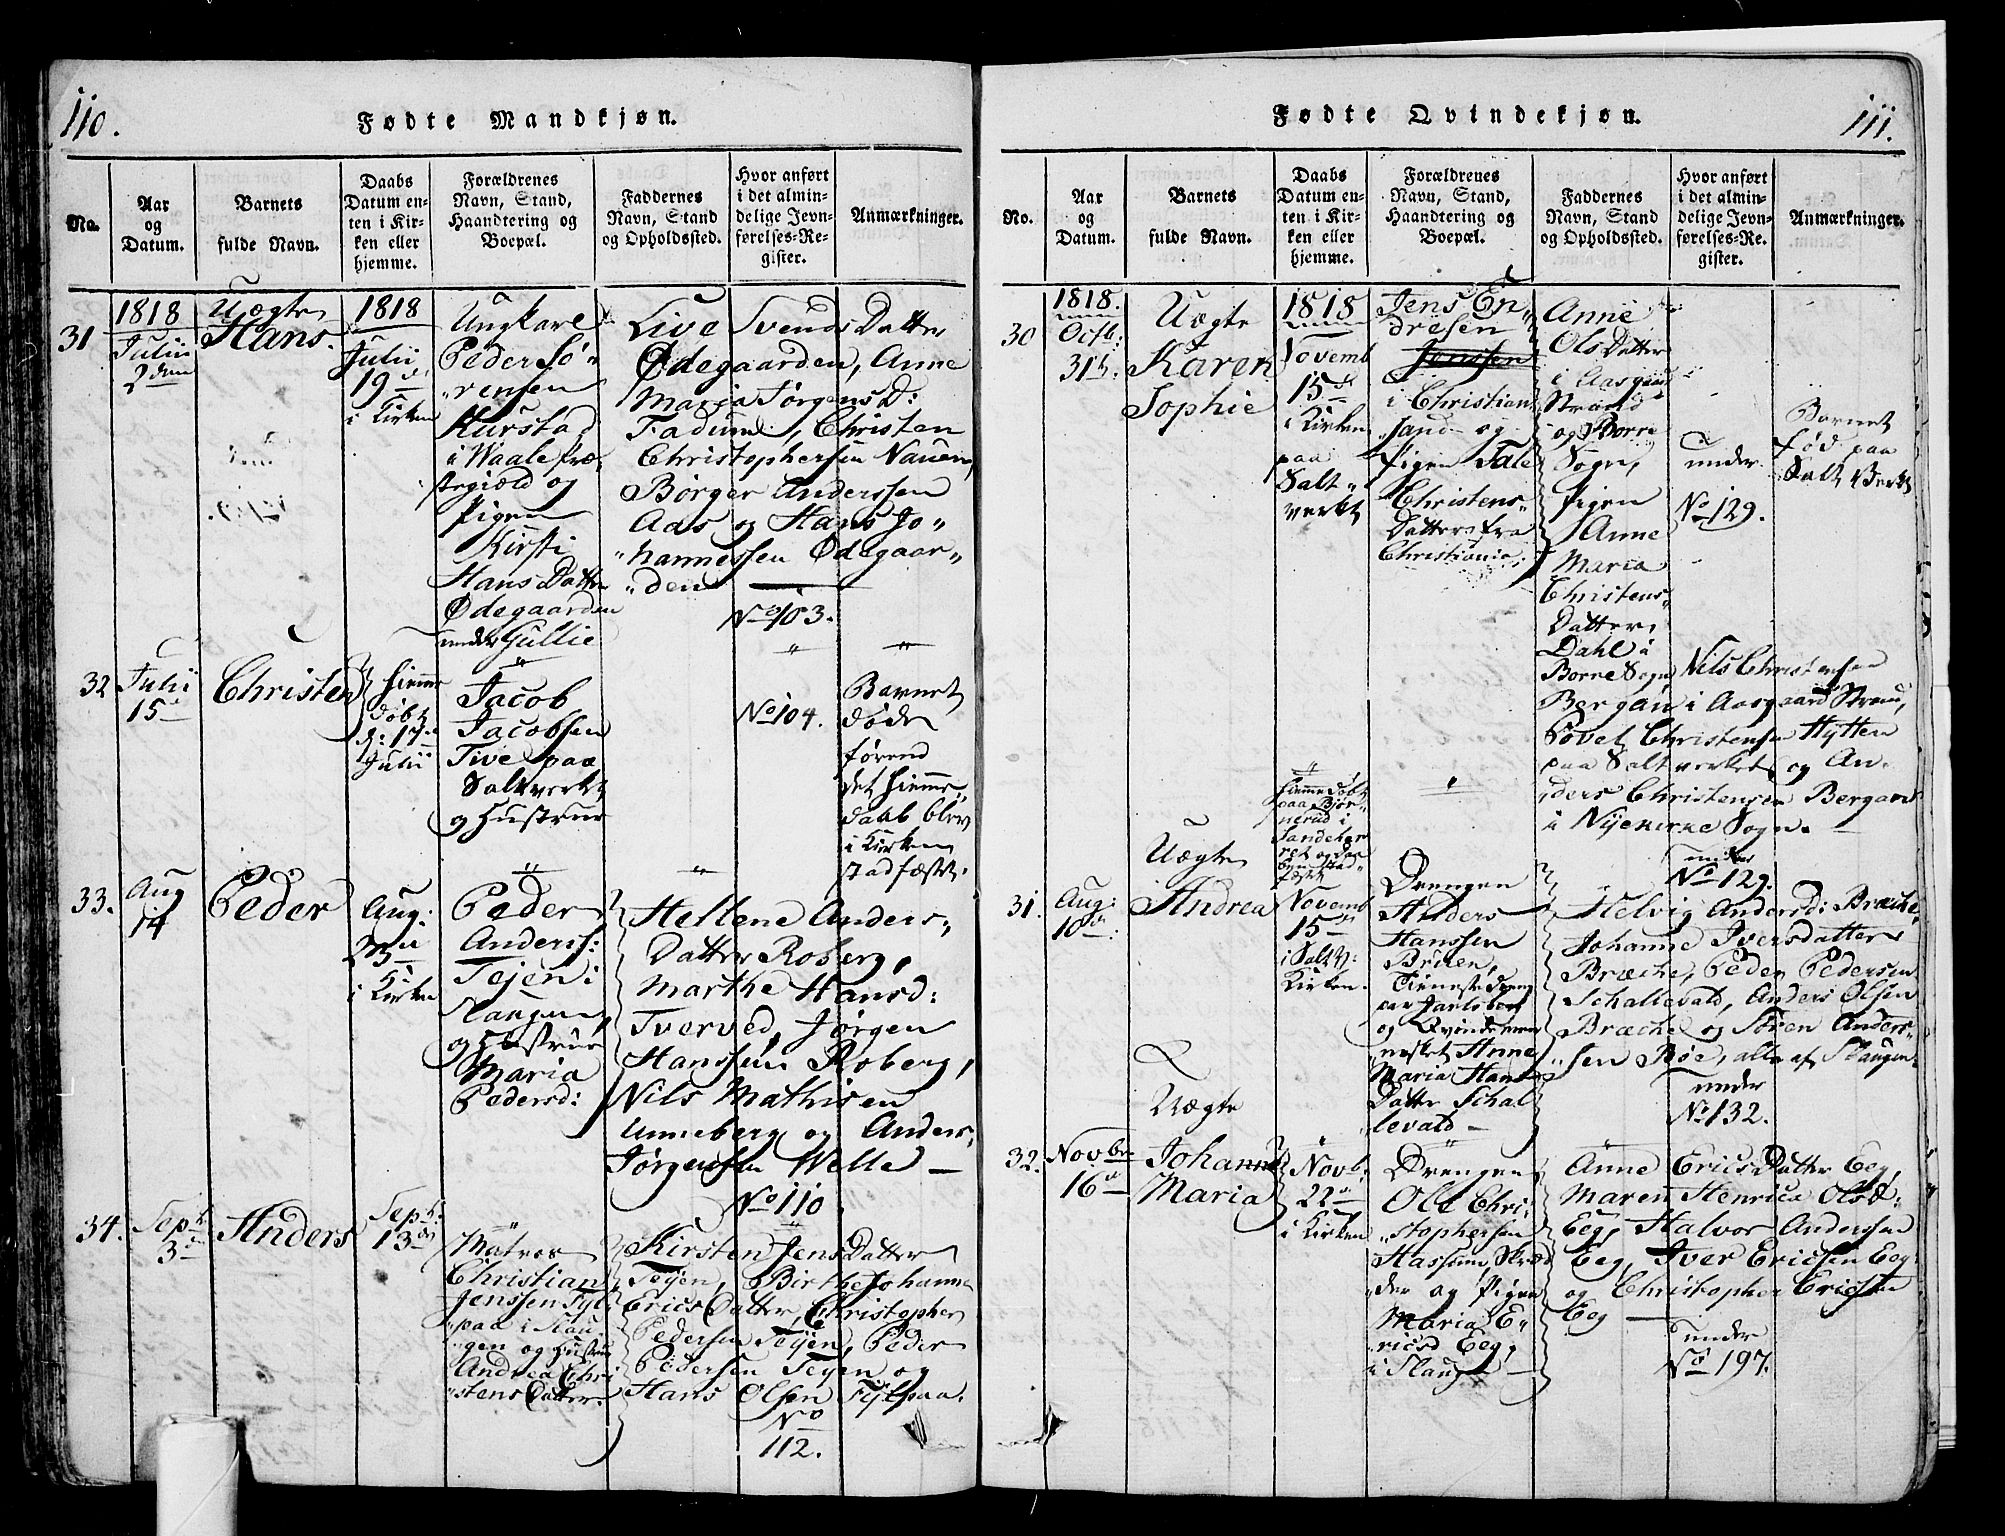 110.
Fødte Mandkjøn.
No.
Aar
og
Datum.
Barnets
fulde Navn.
Daabs
Datum en-
ten i Kir-
ken eller
hjemme.
Forældrenes
Navn, Stand,
Haandtering og
Boepæl.
Faddernes
Navn, Stand
og Opholdssted.
Hvor anført
i det almin-
delige Jevn-
førelses-Re-
gister.
Anmærkninger.
31
1818
Julii
2den
Uægte
Hans.
1818
Julii
19
i Kirken
Ungkarl
Peder Sö-
rensen
Kurstad
i Waale Præ-
stegield og
Pigen
Kirsti
Hans Datter
Ødegaarden
under Gullie
Live Svends Datter
Ødegaarden, Anne
Maria Jörgens D:
Fadum, Christen
Christophersen Nauen,
Börger Anderssen
Aas og Hans Jo-
hannessen Ødegaar-
den
No 103.
32
Julii
15
Christen
hiemme
döbt
d: 17
Julii
Jacob
Jacobsen
Tive paa
Saltverket
og Hustrue
No 104.
Barnet
döde
förend
det hiemme
daab blev
i Kirken
stadfæstet.
33.
Aug
14
Peder
Aug:
23
i Kirken
Peder
Anderss:
Tejen i
Slaugen,
og Hustrue
Maria
Pedersd:
Hellene Anders
Datter Roberg,
Marthe Hansd:
Tverved, Jörgen
Hanssen Roberg,
Nils Mathisen
Unneberg og Anders
Jörgensen Welle
No 110
34.
Sept
3
Anders
Sept:
13
Matros
Christian
Jenssen Fyl-
paa i Slau-
gen og Hustrue
Andrea Chri-
stens Datter.
Kirsten Jens Datter
Teijen, Birthe Johanne
Erics Datter, Christopher
Pedersen Teijen, Peder
Pedersen Teijen og
Hans Olsen Fylpaa.
No
112.
Fødte Qvindekjøn.
111.
No.
Aar
og
Datum.
Barnets
fulde Navn.
Daabs
Datum en-
ten i Kir-
ken eller
hjemme.
Forældrenes
Navn, Stand,
Haandtering og
Boepæl.
Faddernes
Navn, Stand
og Opholdssted.
Hvor anført
i det almin-
delige Jevn-
førelses-Re-
gister.
Anmærkninger.
30
1818.
Octb:
31
Uægte
Karen
Sophie
1818
Novemb
15
i Kirken
paa
Salt-
verket
Jens En-
dresen
Jenssen
i Christian
sand og
Pigen Tale
Christens
Datter fra
Christiania.
Anne
Ols Datter
i Aasgaard
Strand
og Borre
Sogn,
Pigen
Anne
Maria
Christens
Datter
Dahl i
Borre Sogn, Nils Christensen
Bergan i Aasgaard Strand,
Povel Christensen Hytten
paa Saltverket, og An-
ders Christensen Bergan
i Nijekirke Sogn.
under
No 129.
Barnet
fød paa
Salt Verket
31.
Aug:
10
Uægte
Andrea
Hiemme Döbt
paa Björ-
nerud i
Sandeher-
ret og Daa-
ben stad-
fæstet
Novemb
15
i Saltv:
Kirken.
Drengen
Anders
Hanssen
Tieneste dreng
paa Jarlsberg
og Qvindemen-
nesket Anne
Maria Hans
Datter Schal-
levald
under
No 129.
Helvig Andersd: Bræche,
Johanne Iversdatter
Bræche, Peder Pedersen
Schallevald, Anders Olsen
Bræche og Sören Anders-
sen Röe, alle af Slaugen.
under
No 132.
32.
Novbr
16
Uægte
Johanne
Maria
Novb:
22
i Kirken
Drengen
Ole Chri-
stophersen
Hassum, Skræd-
der og Pigen
Maria E-
ricsd Eeg,
i Slaug
Anne Erics Datter Eeg,
Maren Henrica Olsd:
Eeg, Halvor Anderssen
Eeg, Iver Ericsen Eeg
og Christopher Ericsen
Eeg
under
No 197.